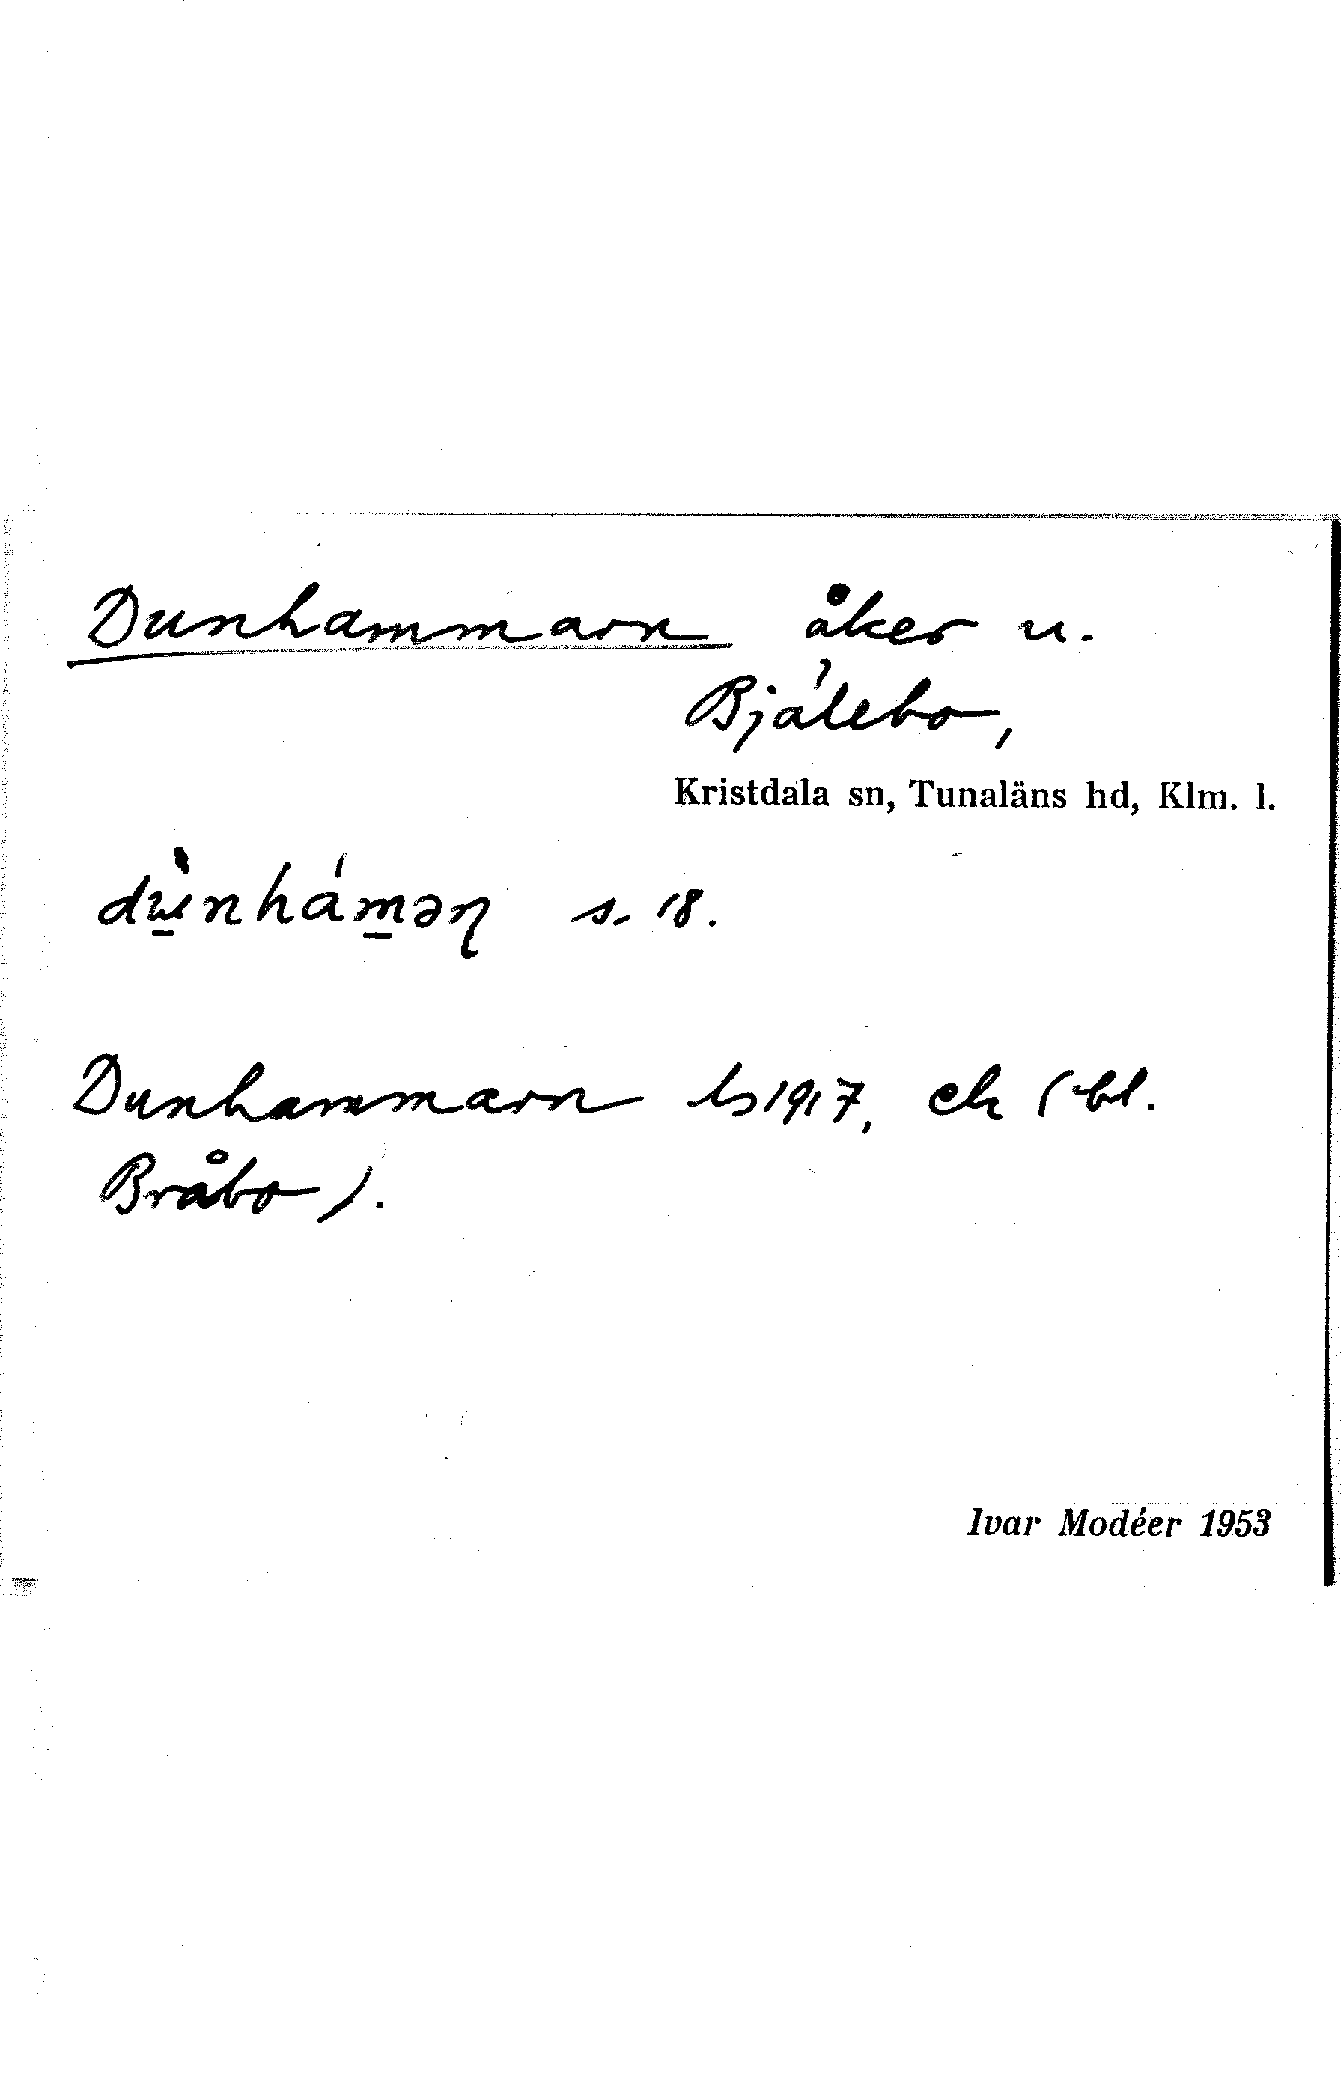 Dunhammarn åker u.
Bjälebo,
Kristdala sn, Tunaläns hd, Klm. l.
dù̱nhám̱əɳ s. 18.
Dunhammarn ls 1917, ek (bl.
Bråbo).
Ivar Modéer 1953